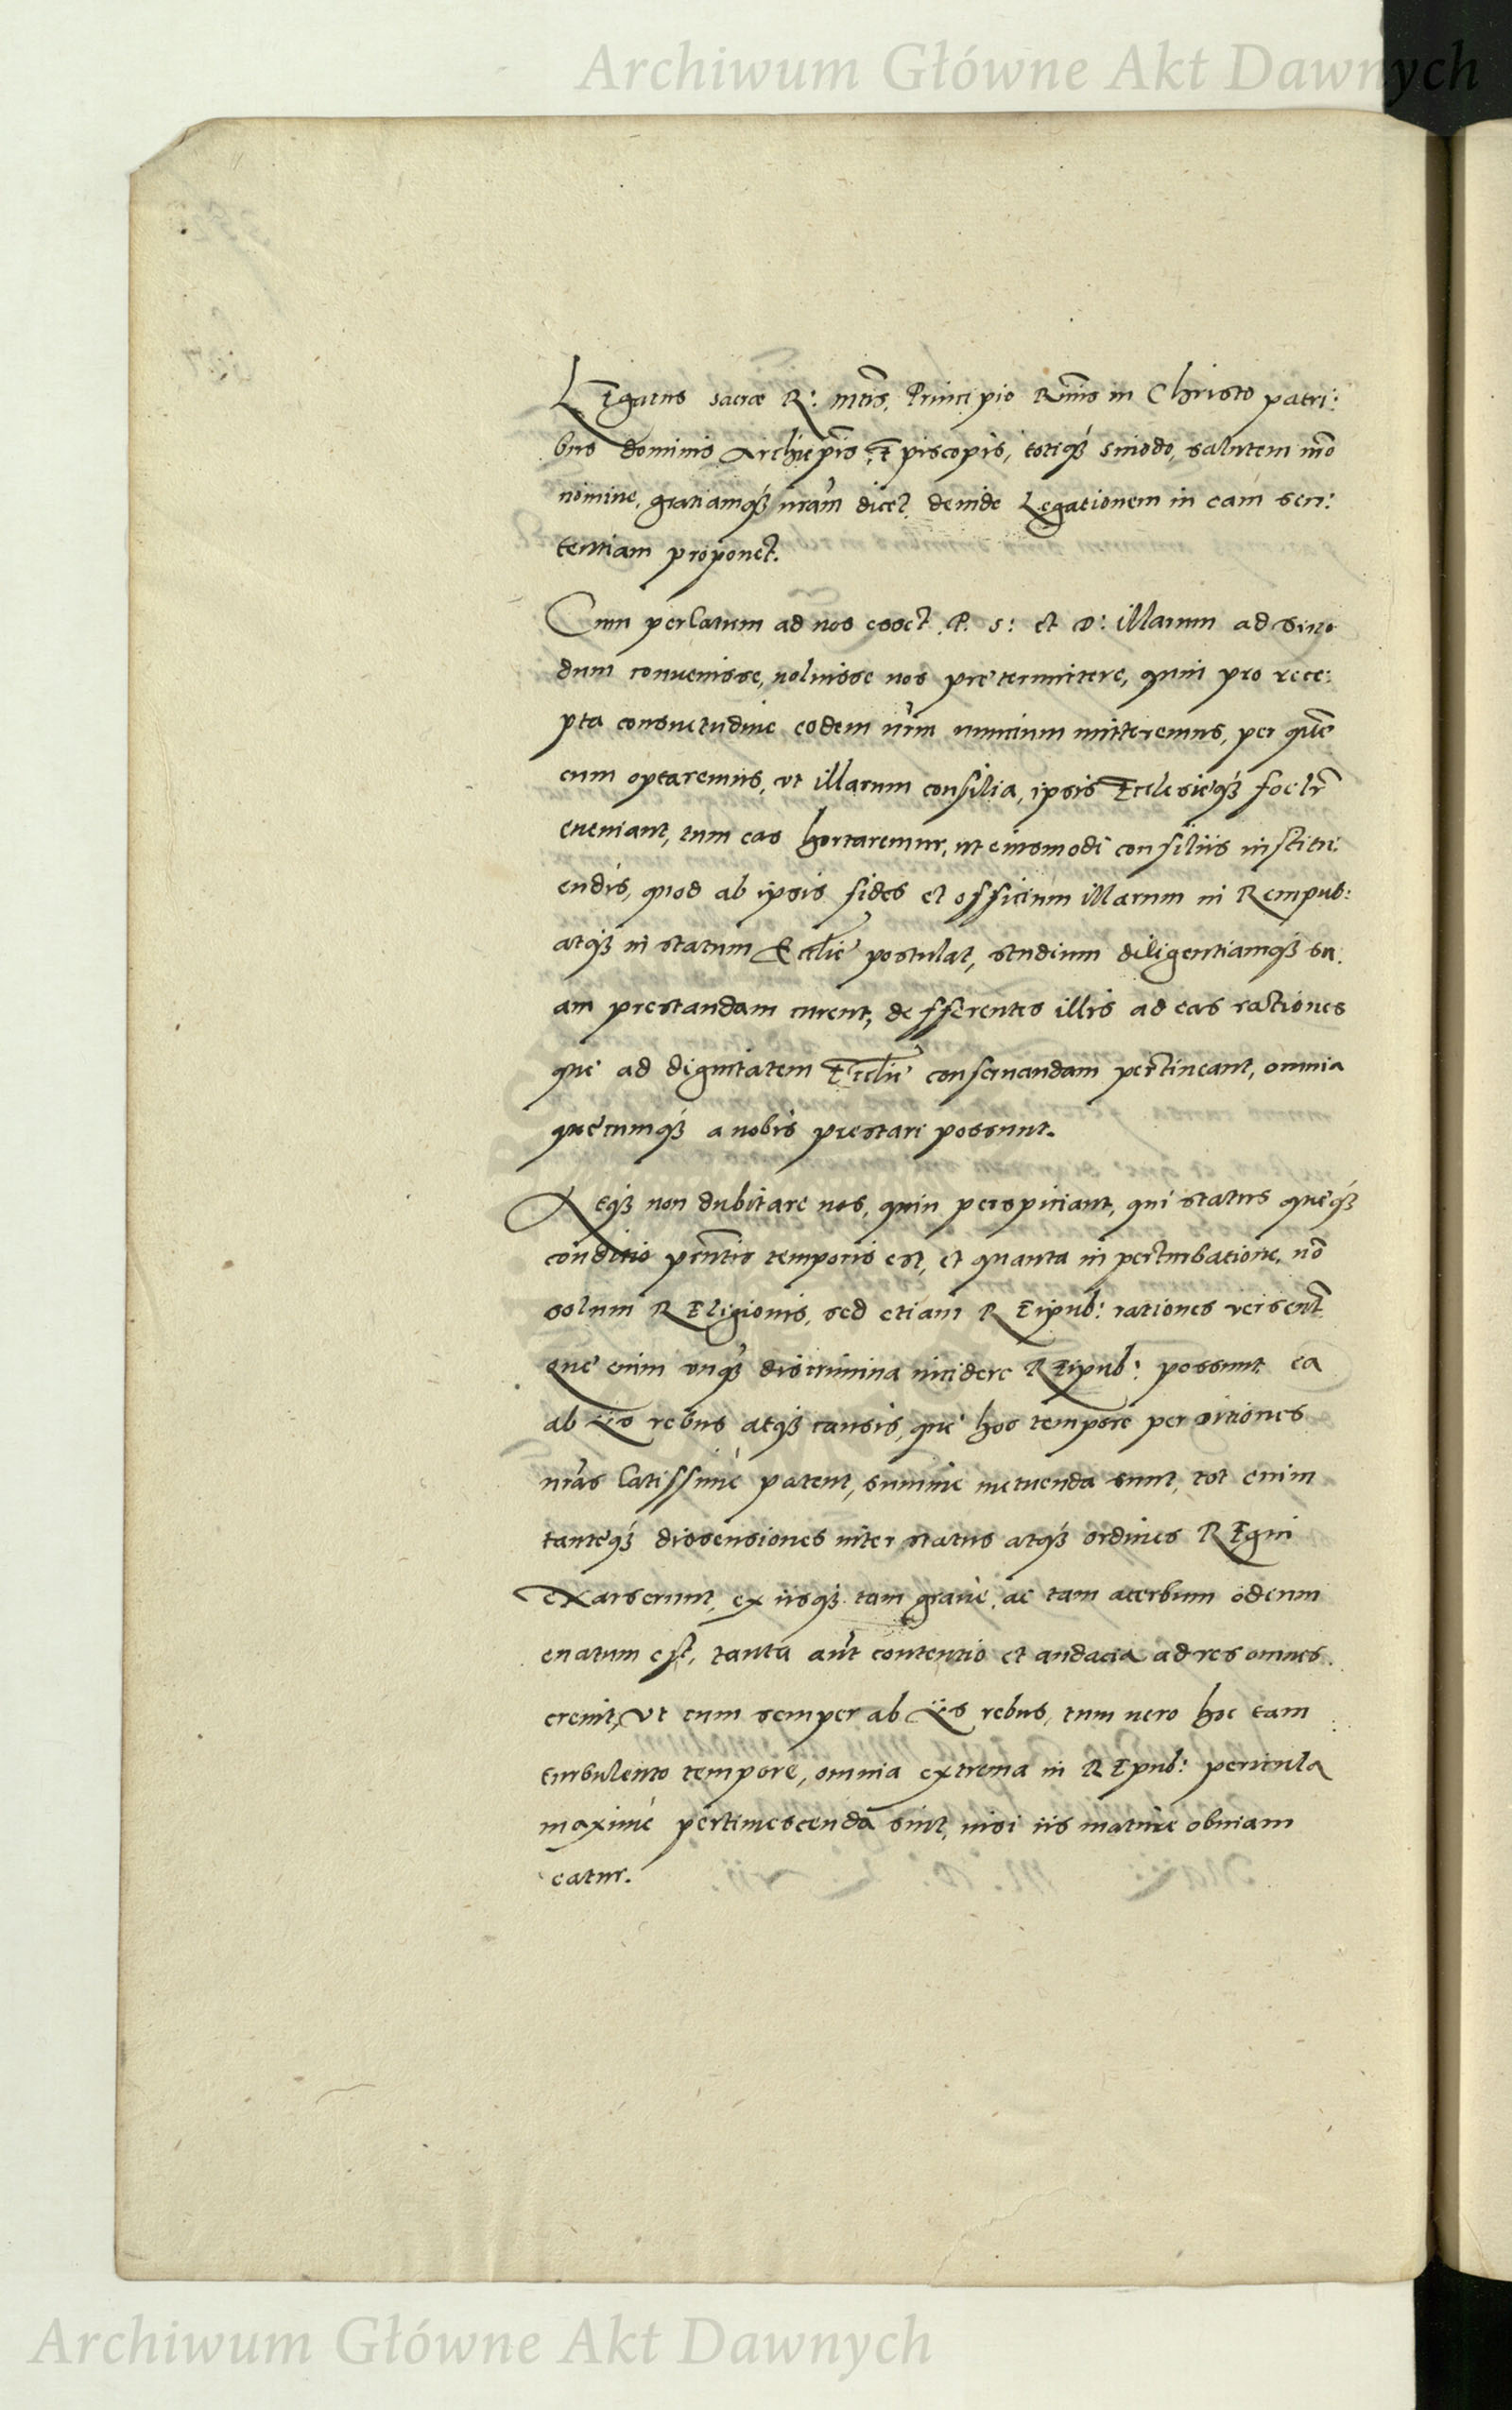 Archiwum Główne Akt Dawnych
LEgatus sacræ R: mtis, Principio Rmis in Christo patri:
bus dominis Archiepis, Episcopis, totiqꝫ sinodo, salutem nro
nomine, gratiamqꝫ nram dicet, deinde Legationem in eam sen:
tentiam proponet.
Cum perlatum ad nos esset P. S: et D: illarum ad Sino
dum convenisse, noluisse nos prętermittere, quin pro rece:
pta consuetudine eodem nrm nuncium mitteremus, per quē
cum optaremus, ut illarum consilia, ipsis Ecclesięqꝫ foelr
eveniant, tum eas hortaremur, ut eiusmodi consiliis institu
endis, quod ab ipsis fides et officium illarum in Rempub:
atqꝫ in statum Ecclię postulat, studium diligentiamqꝫ su
am prestandam curent, defferentes illis ad eas rationes
quę ad dignitatem Ecclię conservandam pertineant, omnia
quęcumqꝫ a nobis prestari possunt.
Neqꝫ non dubitare nos, quin perspiciant, qui status quęqꝫ
conditio prntis temporis est, et quanta in perturbatione, nō
solum REligionis, sed etiam REipub: rationes versent
quę enim unqꝫ discrimina incidere REipub: possunt ea
ab iis rebus atqꝫ causis, quę hoc tempore per ditiones
nras latissimè patent, summe metuenda sunt, tot enim
tantęqꝫ dissensiones inter status atqꝫ ordines REgni
Exarserunt, ex iisqꝫ tam grave, ac tam acerbum odium
enatum est, tanta aut contentio et audacia ad res omnes
crevit, ut cum semper ab iis rebus, tum vero hoc tam
turbulento tempore, omnia extrema in REpub: pericula
maximè pertimescenda sint, nisi iis mature obviam
eatur.
Archiwum Główne Akt Dawnych